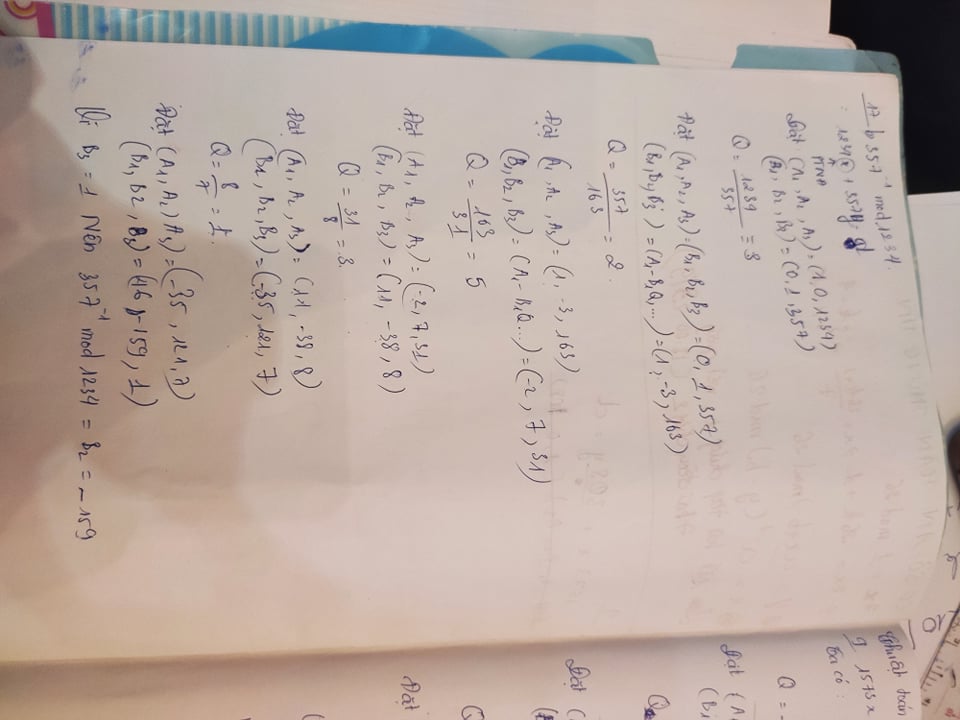 17 b 357⁻¹ mod 1234.
: 1234x + 357y = d
PTNĐ
Đặt (A₁, A₂, A₃) = (1, 0, 1234)
(B₁, B₂, B₃) = (0, 1, 357)
Q = 1234/357 = 3
Đặt (A₁, A₂, A₃) = (B₁, B₂, B₃) = (0, 1, 357)
(B₁, B₂, B₃) = (A₁ - B₁Q, ...) = (1, -3, 163)
Q = 357/163 = 2.
Đặt (A₁, A₂, A₃) = (1, -3, 163)
(B₁, B₂, B₃) = (A₁ - B₁Q ...) = (-2, 7, 31)
Q = 163/31 = 5
Đặt (A₁, A₂, A₃) = (-2, 7, 31)
(B₁, B₂, B₃) = (11, -38, 8)
Q = 31/8 = 3.
Đặt (A₁, A₂, A₃) = (11, -38, 8)
(B₁, B₂, B₃) = (-35, 121, 7)
Q = 8/7 = 1.
Đặt (A₁, A₂, A₃) = (-35, 121, 7)
(B₁, B2, B₃) = (46, -159, 1)
Vì B₃ = 1 Nên 357⁻¹ mod 1234 = B₂ = -159
Thuật toán
g 1573x
Ta có :
Q = -
Đặt (A
(B₁
Q
Đặt (
Q
Đặt